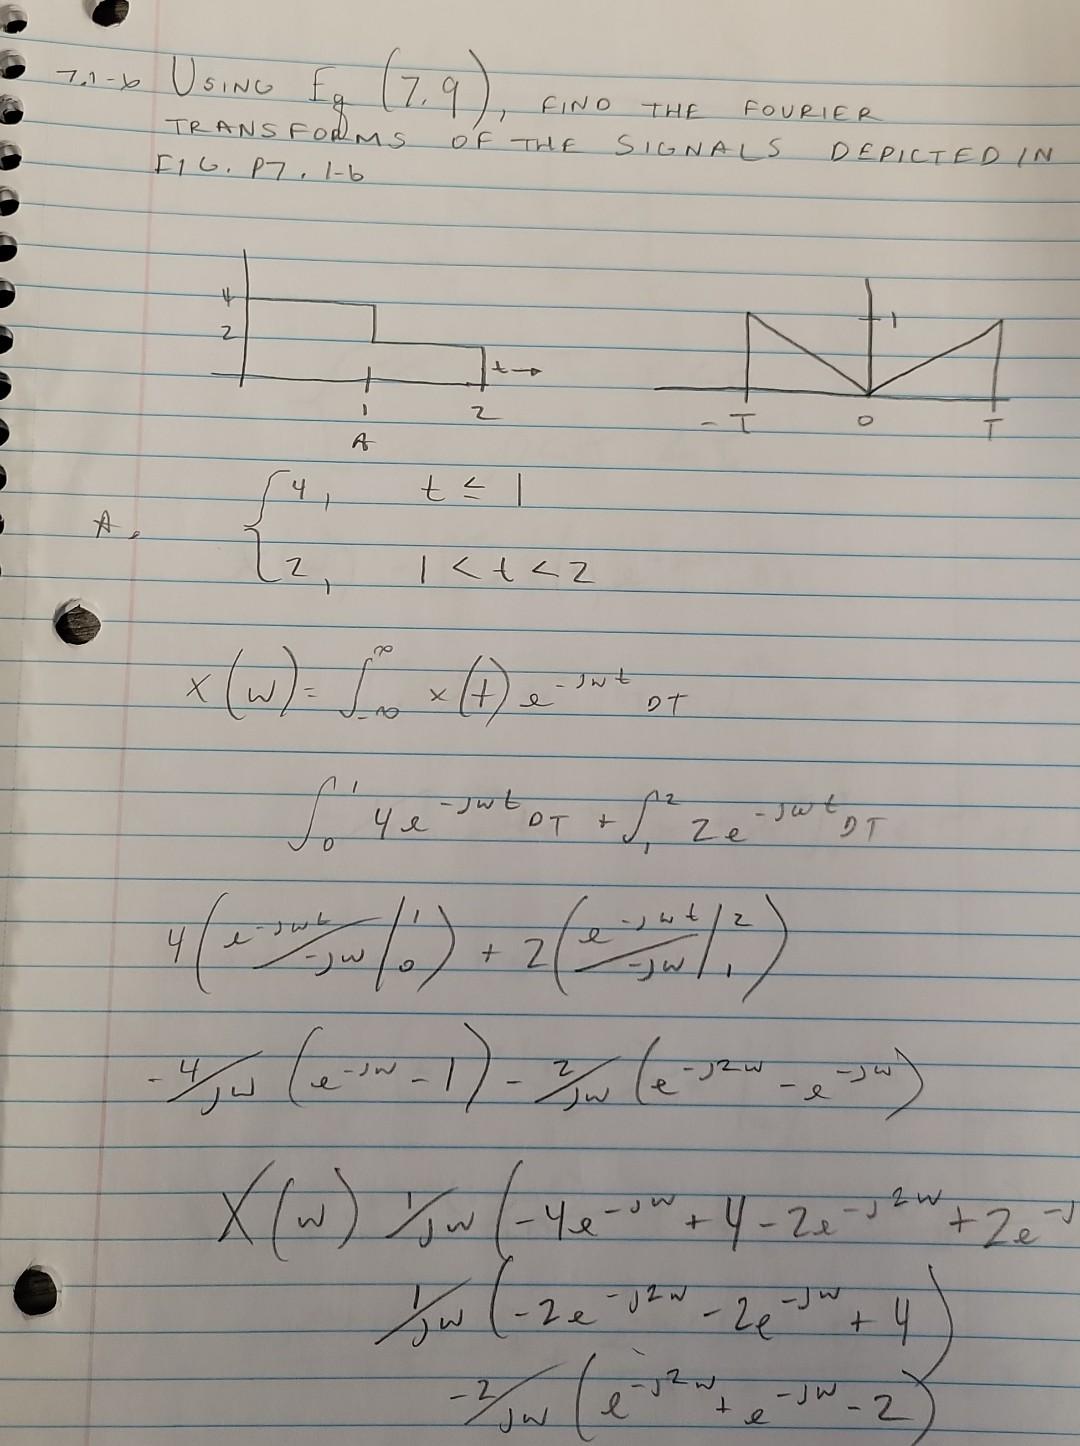 7.1-6 USING Eq (7.9), FIND THE FOURIER
TRANSFORMS OF THE SIGNALS DEPICTED IN
FIG. P7.1-6
4
2
t→
1
2
A
1
-T
0
T
A. { 4, t ≤ 1
2, 1 < t < 2
x(w) = ∫_{-∞}^{∞} x(t) e^{-jwt} DT
∫_0^1 4e^{-jwt} DT + ∫_1^2 2e^{-jwt} DT
4(e^{-jwt}/-jw |_0^1) + 2(e^{-jwt}/-jw |_1^2)
-4/jw (e^{-jw} - 1) - 2/jw (e^{-j2w} - e^{-jw})
X(w) 1/jw (-4e^{-jw} + 4 - 2e^{-j2w} + 2e^{-j
1/jw (-2e^{-j2w} - 2e^{-jw} + 4)
-2/jw (e^{-j2w} + e^{-jw} - 2)